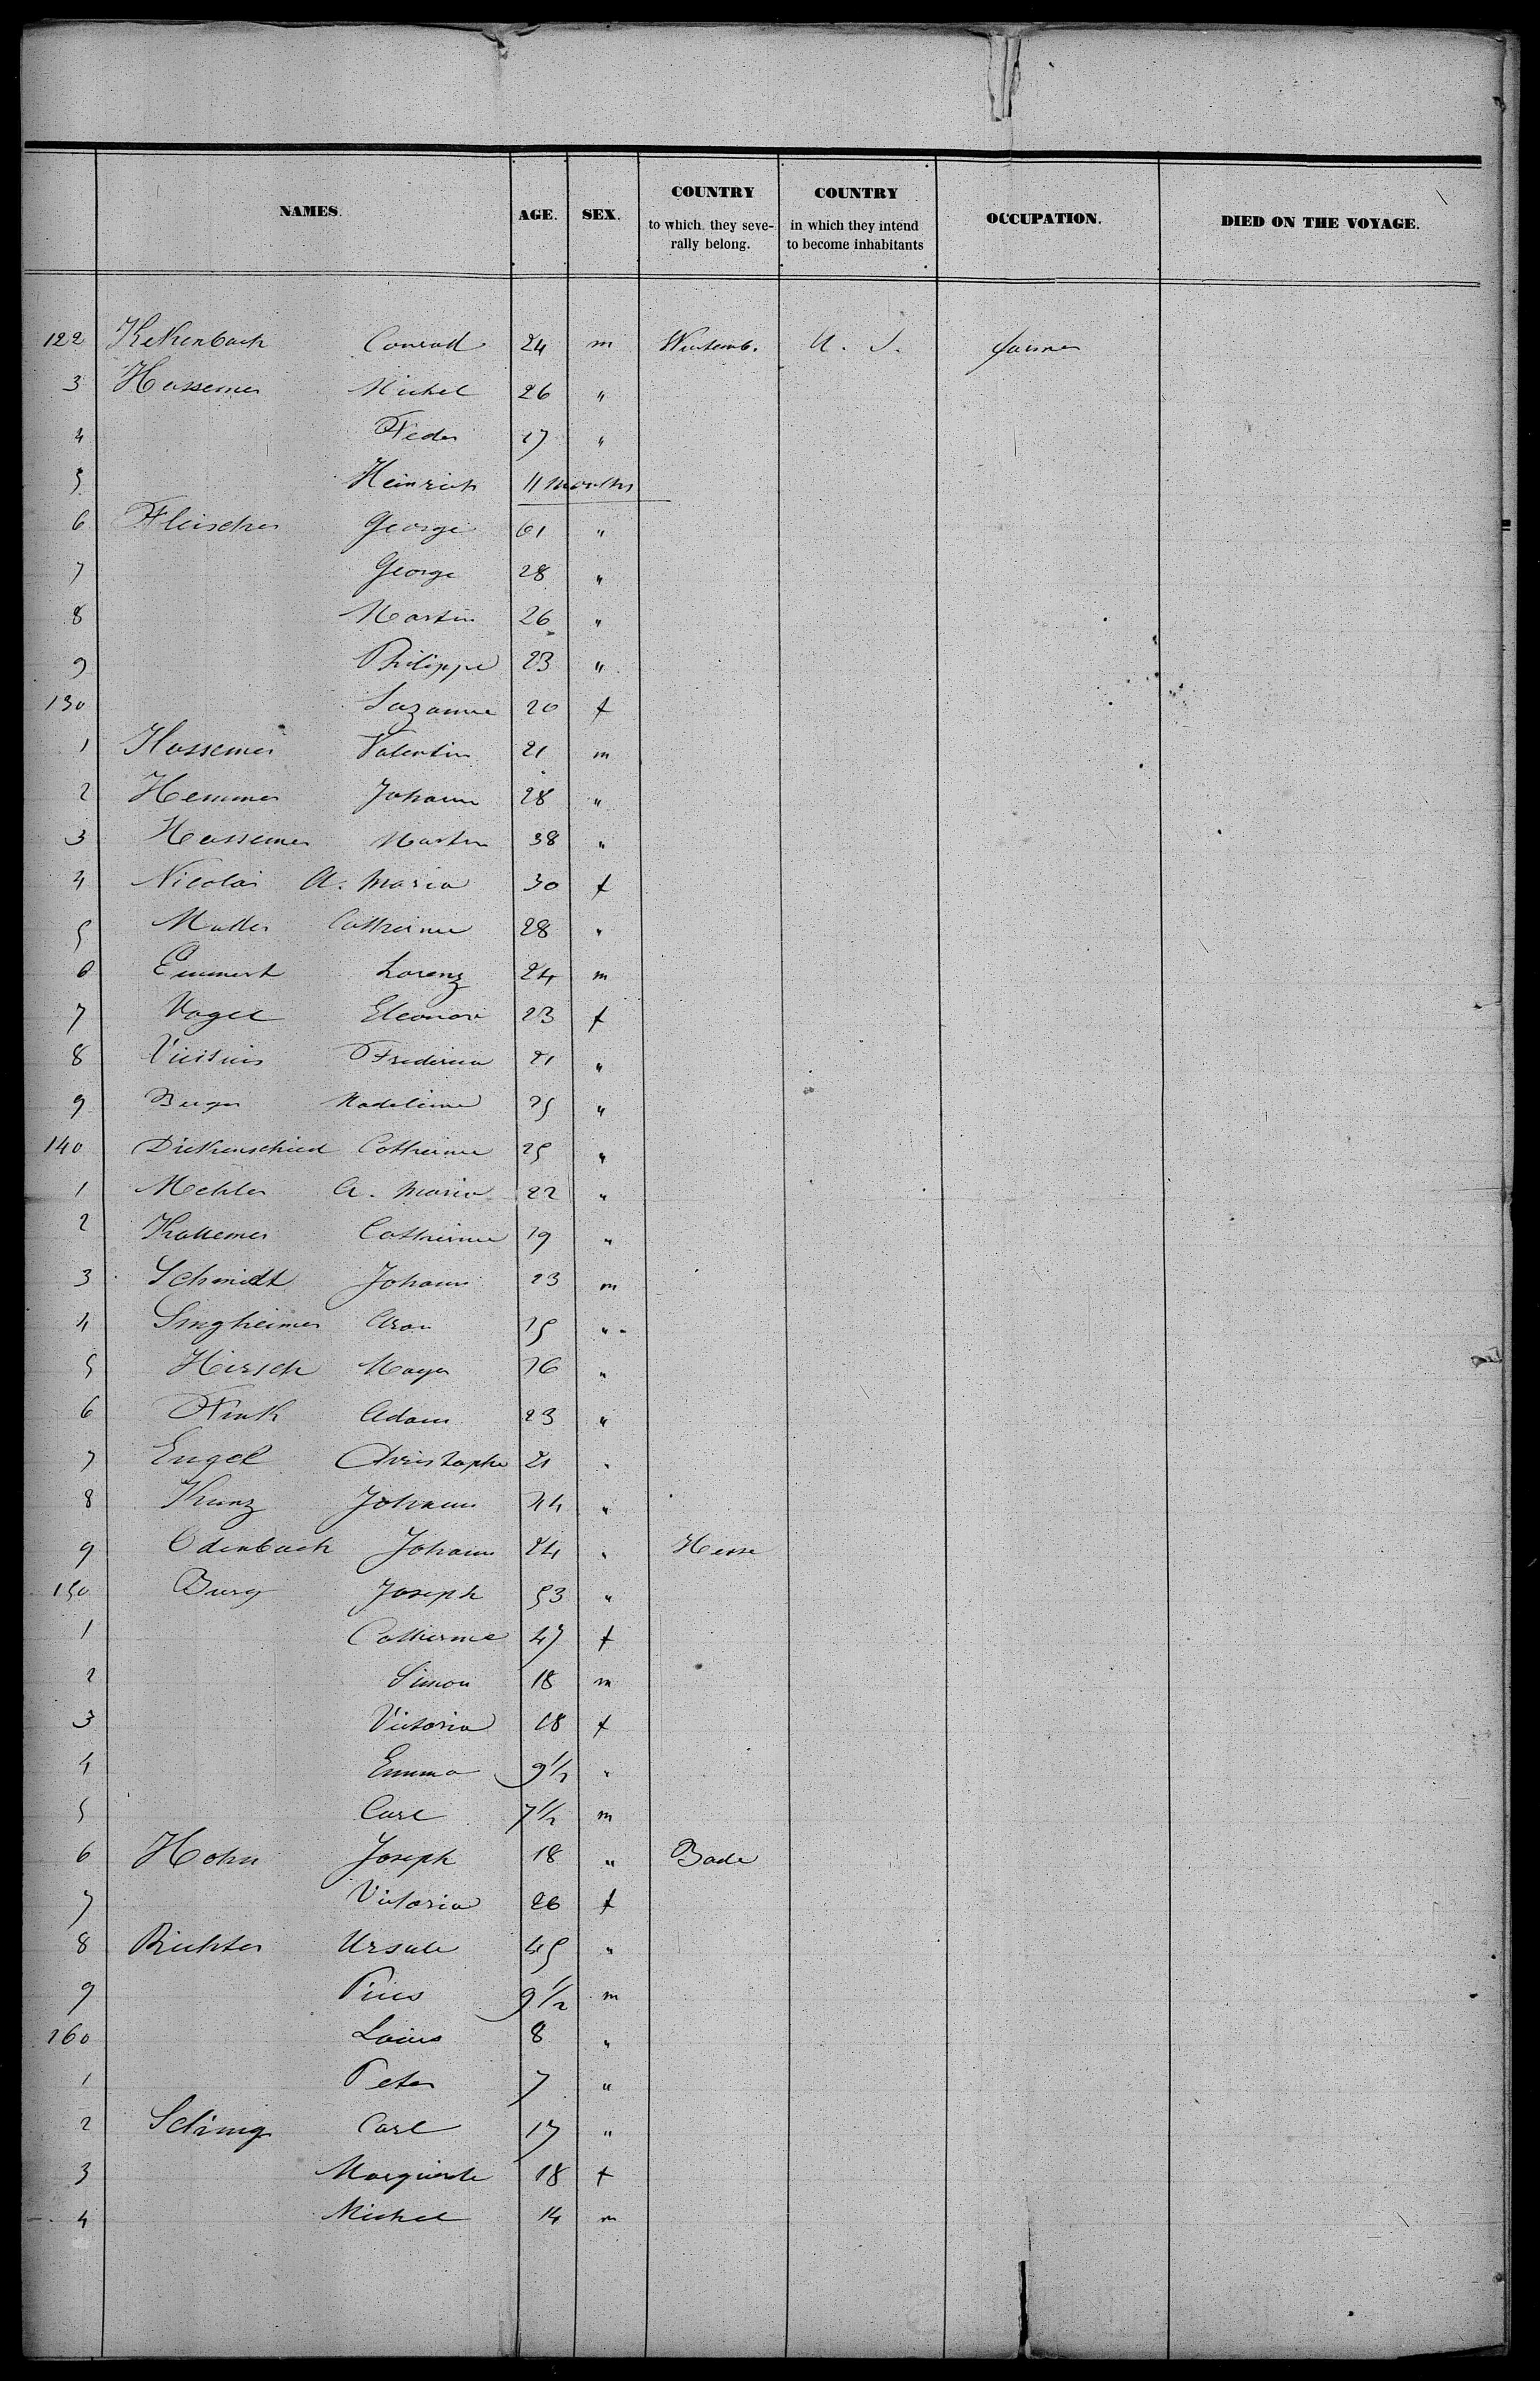 NAMES. AGE. SEX. COUNTRY to which they severally belong. COUNTRY in which they intend to become inhabitants OCCUPATION. DIED ON THE VOYAGE.
122 Kekenbach Conrad 24 m Wurtemb. U. S. farmer
3 Hassemer Michel 26 "
4 Feder 17 "
5 Heinrich 11 months
6 Fleischer George 61 "
7 George 28 "
8 Martin 26 "
9 Philippe 23 "
130 Suzanne 20 f
1 Hassemer Valentin 21 m
2 Hemmer Johann 28 "
3 Hassemer Martin 38 "
4 Nicolai A. Maria 30 f
5 Muller Catherine 28 "
6 Emmert Lorenz 24 m
7 Vogel Eleonore 23 f
8 Frederica 21 "
9 Berger Madeleine 25 "
140 Dickenschied Catherine 25 "
1 Mechler A. Maria 22 "
2 Catherine 19 "
3 Schmidt Johann 23 m
4 Singheimer Aron 15 "
5 Hirsch Mayer 16 "
6 Fink Adam 23 "
7 Engel Christophe 21 "
8 Kunz Johann 44 "
9 Odenbach Johann 24 " Hesse
150 Burg Joseph 53 "
1 Catherine 47 f
2 Simon 18 m
3 Victoria 18 f
4 Emma 9½ "
5 Carl 7½ m
6 Hohn Joseph 18 " Bade
7 Victoria 26 f
8 Richter Ursule 45 "
9 Pius 9½ m
160 Louis 8 "
1 Peter 7 "
2 Carl 17 "
3 Marguerite 18 f
4 Michel 14 m